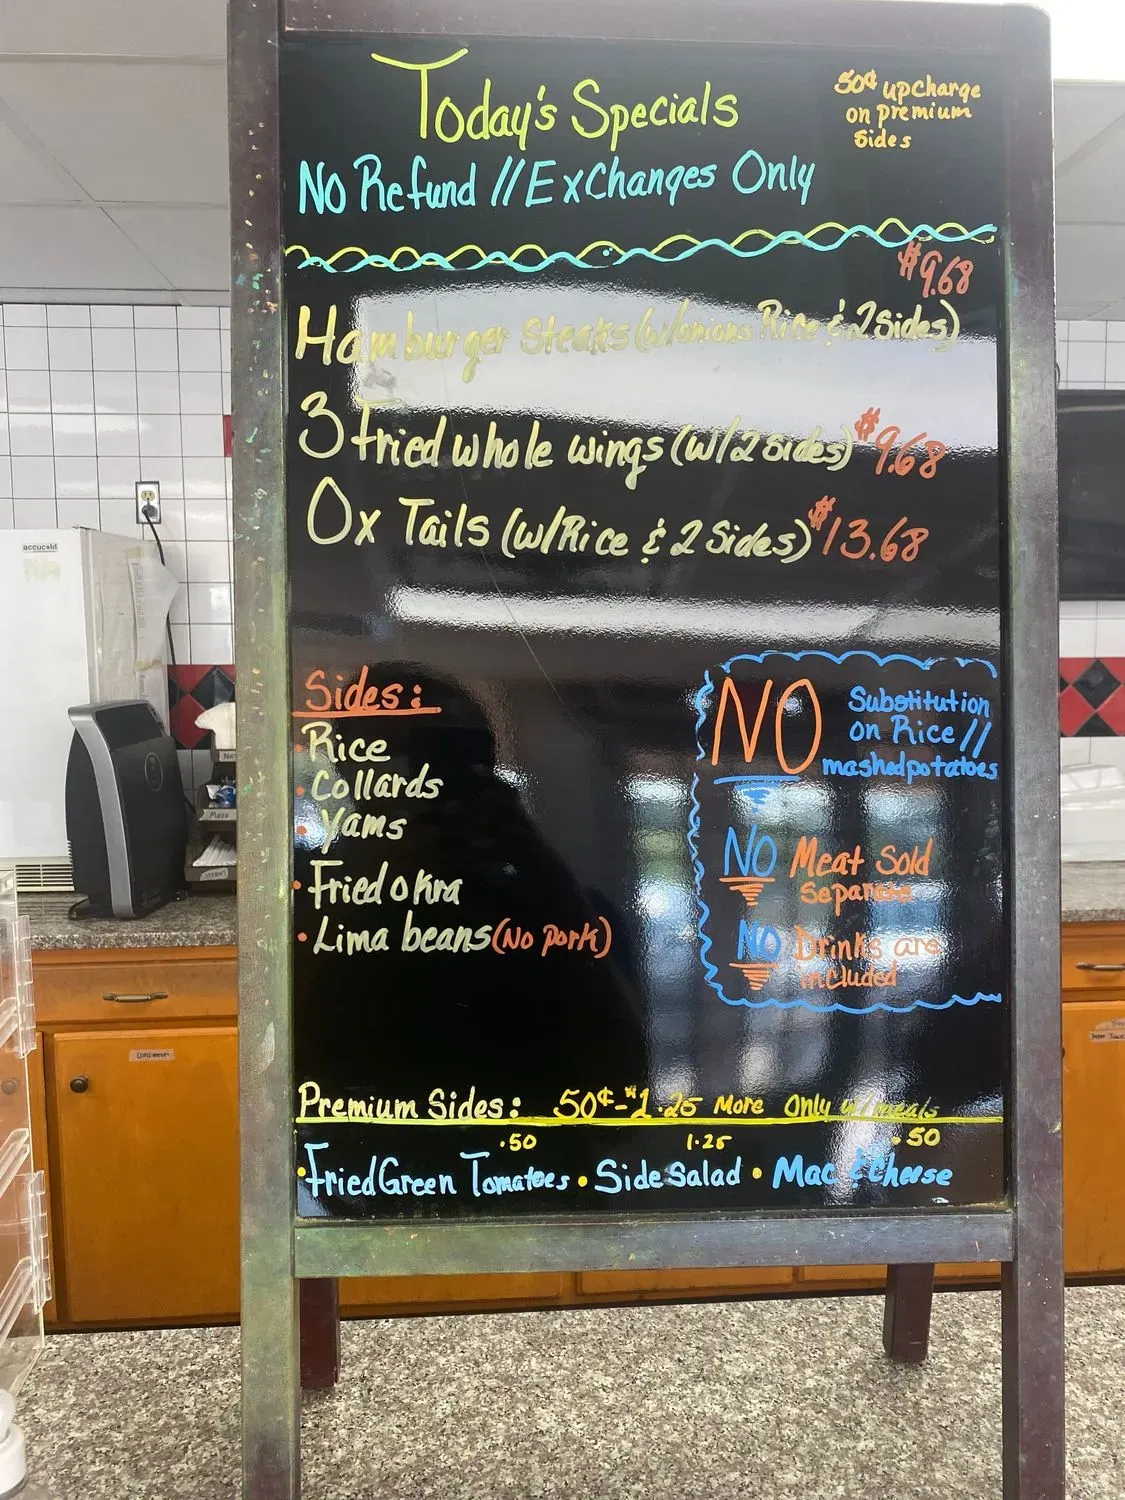 Today's Specials
50¢ upcharge
on premium
Sides
No Refund // ExChanges Only
$9.68
Hamburger Steaks (w/onions Rice & 2 Sides)
3 Fried whole wings (w/2 sides) $9.68
Ox Tails (w/Rice & 2 Sides) $13.68
Sides:
• Rice
• Collards
• Yams
• Fried okra
• Lima beans (No pork)
NO Substitution
on Rice //
mashed potatoes
NO Meat Sold
separate
NO Drinks are
included
Premium Sides: 50¢-$1.25 more Only w/meals
.50 1.25 .50
• Fried Green Tomatoes • Side Salad • Mac & Cheese
accucold